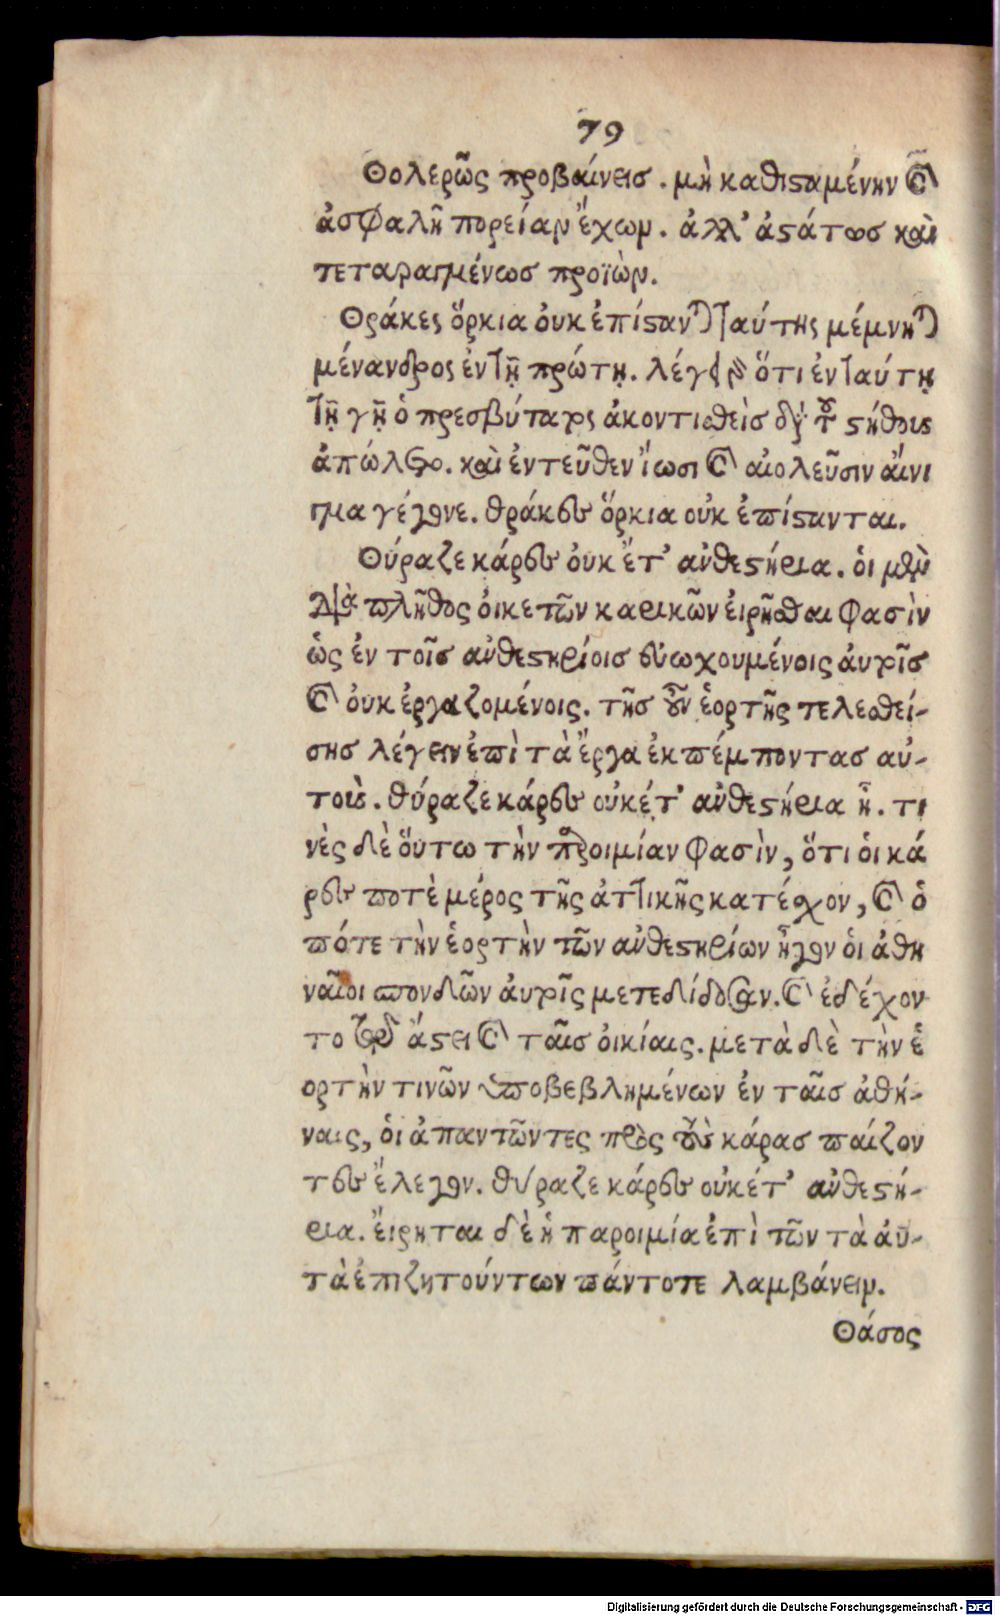 79
Θολερῶς προβαίνεις. μὴ καθισταμένην καὶ
ἀσφαλῆ πορείαν ἔχων. ἀλλ' ἀστάτως καὶ
τεταραγμένως προϊὼν.
Θράκες ὅρκια ὀυκ ἐπίστανται ταύτης μέμνηται
μένανδρος ἐν τῇ πρώτῃ. λέγει δὲ ὅτι ἐν ταύτῃ
τῇ γῇ ὁ πρεσβύτατος ἀκοντισθεὶς διὰ τοῦ στήθους
ἀπώλετο. καὶ ἐντεῦθεν ἴωσι καὶ αἰολεῦσιν ἀίνι
γμα γέγονε. θράκες ὅρκια οὐκ ἐπίστανται.
Θύραζε κάρες ὀυκ ἔτ' ἀνθεστήρια. ὁι μὲν
διὰ πλῆθος ὀικετῶν καρικῶν ἐιρῆσθαι φασὶν
ὡς ἐν τοῖς ἀνθεστηρίοις εὐωχουμένοις ἀυτοῖς
καὶ ὀυκ ἐργαζομένοις. τῆς οὖν ἑορτῆς τελεσθεί-
σης λέγειν ἐπὶ τὰ ἔργα ἐκπέμποντας αὐ-
τοὺς. θύραζε κάρες οὐκέτ' ἀνθεστήρια ἦ. τι
νὲς δὲ ὅυτω τὴν παροιμίαν φασὶν, ὅτι ὁι κά
ρες ποτὲ μέρος τῆς ἀττικῆς κατέσχον, καὶ ὁ
πότε τὴν ἑορτὴν τῶν ἀνθεστηρίων ἦγον ὁι ἀθη
ναῖοι σπονδῶν ἀυτοῖς μετεδίδοσαν. καὶ ἐδέχον
το τῷ ἄστει καὶ ταῖς ὀικίαις. μετὰ δὲ τὴν ἑ
ορτὴν τινῶν ὑποβεβλημένων ἐν ταῖς ἀθή-
ναις, ὁι ἀπαντῶντες πρὸς τοὺς κάρας παίζον
τες ἔλεγον. θύραζε κάρες οὐκέτ' ἀνθεστή-
ρια. ἔιρηται δὲ ἡ παροιμία ἐπὶ τῶν τὰ ἀυ-
τὰ ἐπιζητούντων πάντοτε λαμβάνειν.
Θάσος
Digitalisierung gefördert durch die Deutsche Forschungsgemeinschaft - DFG